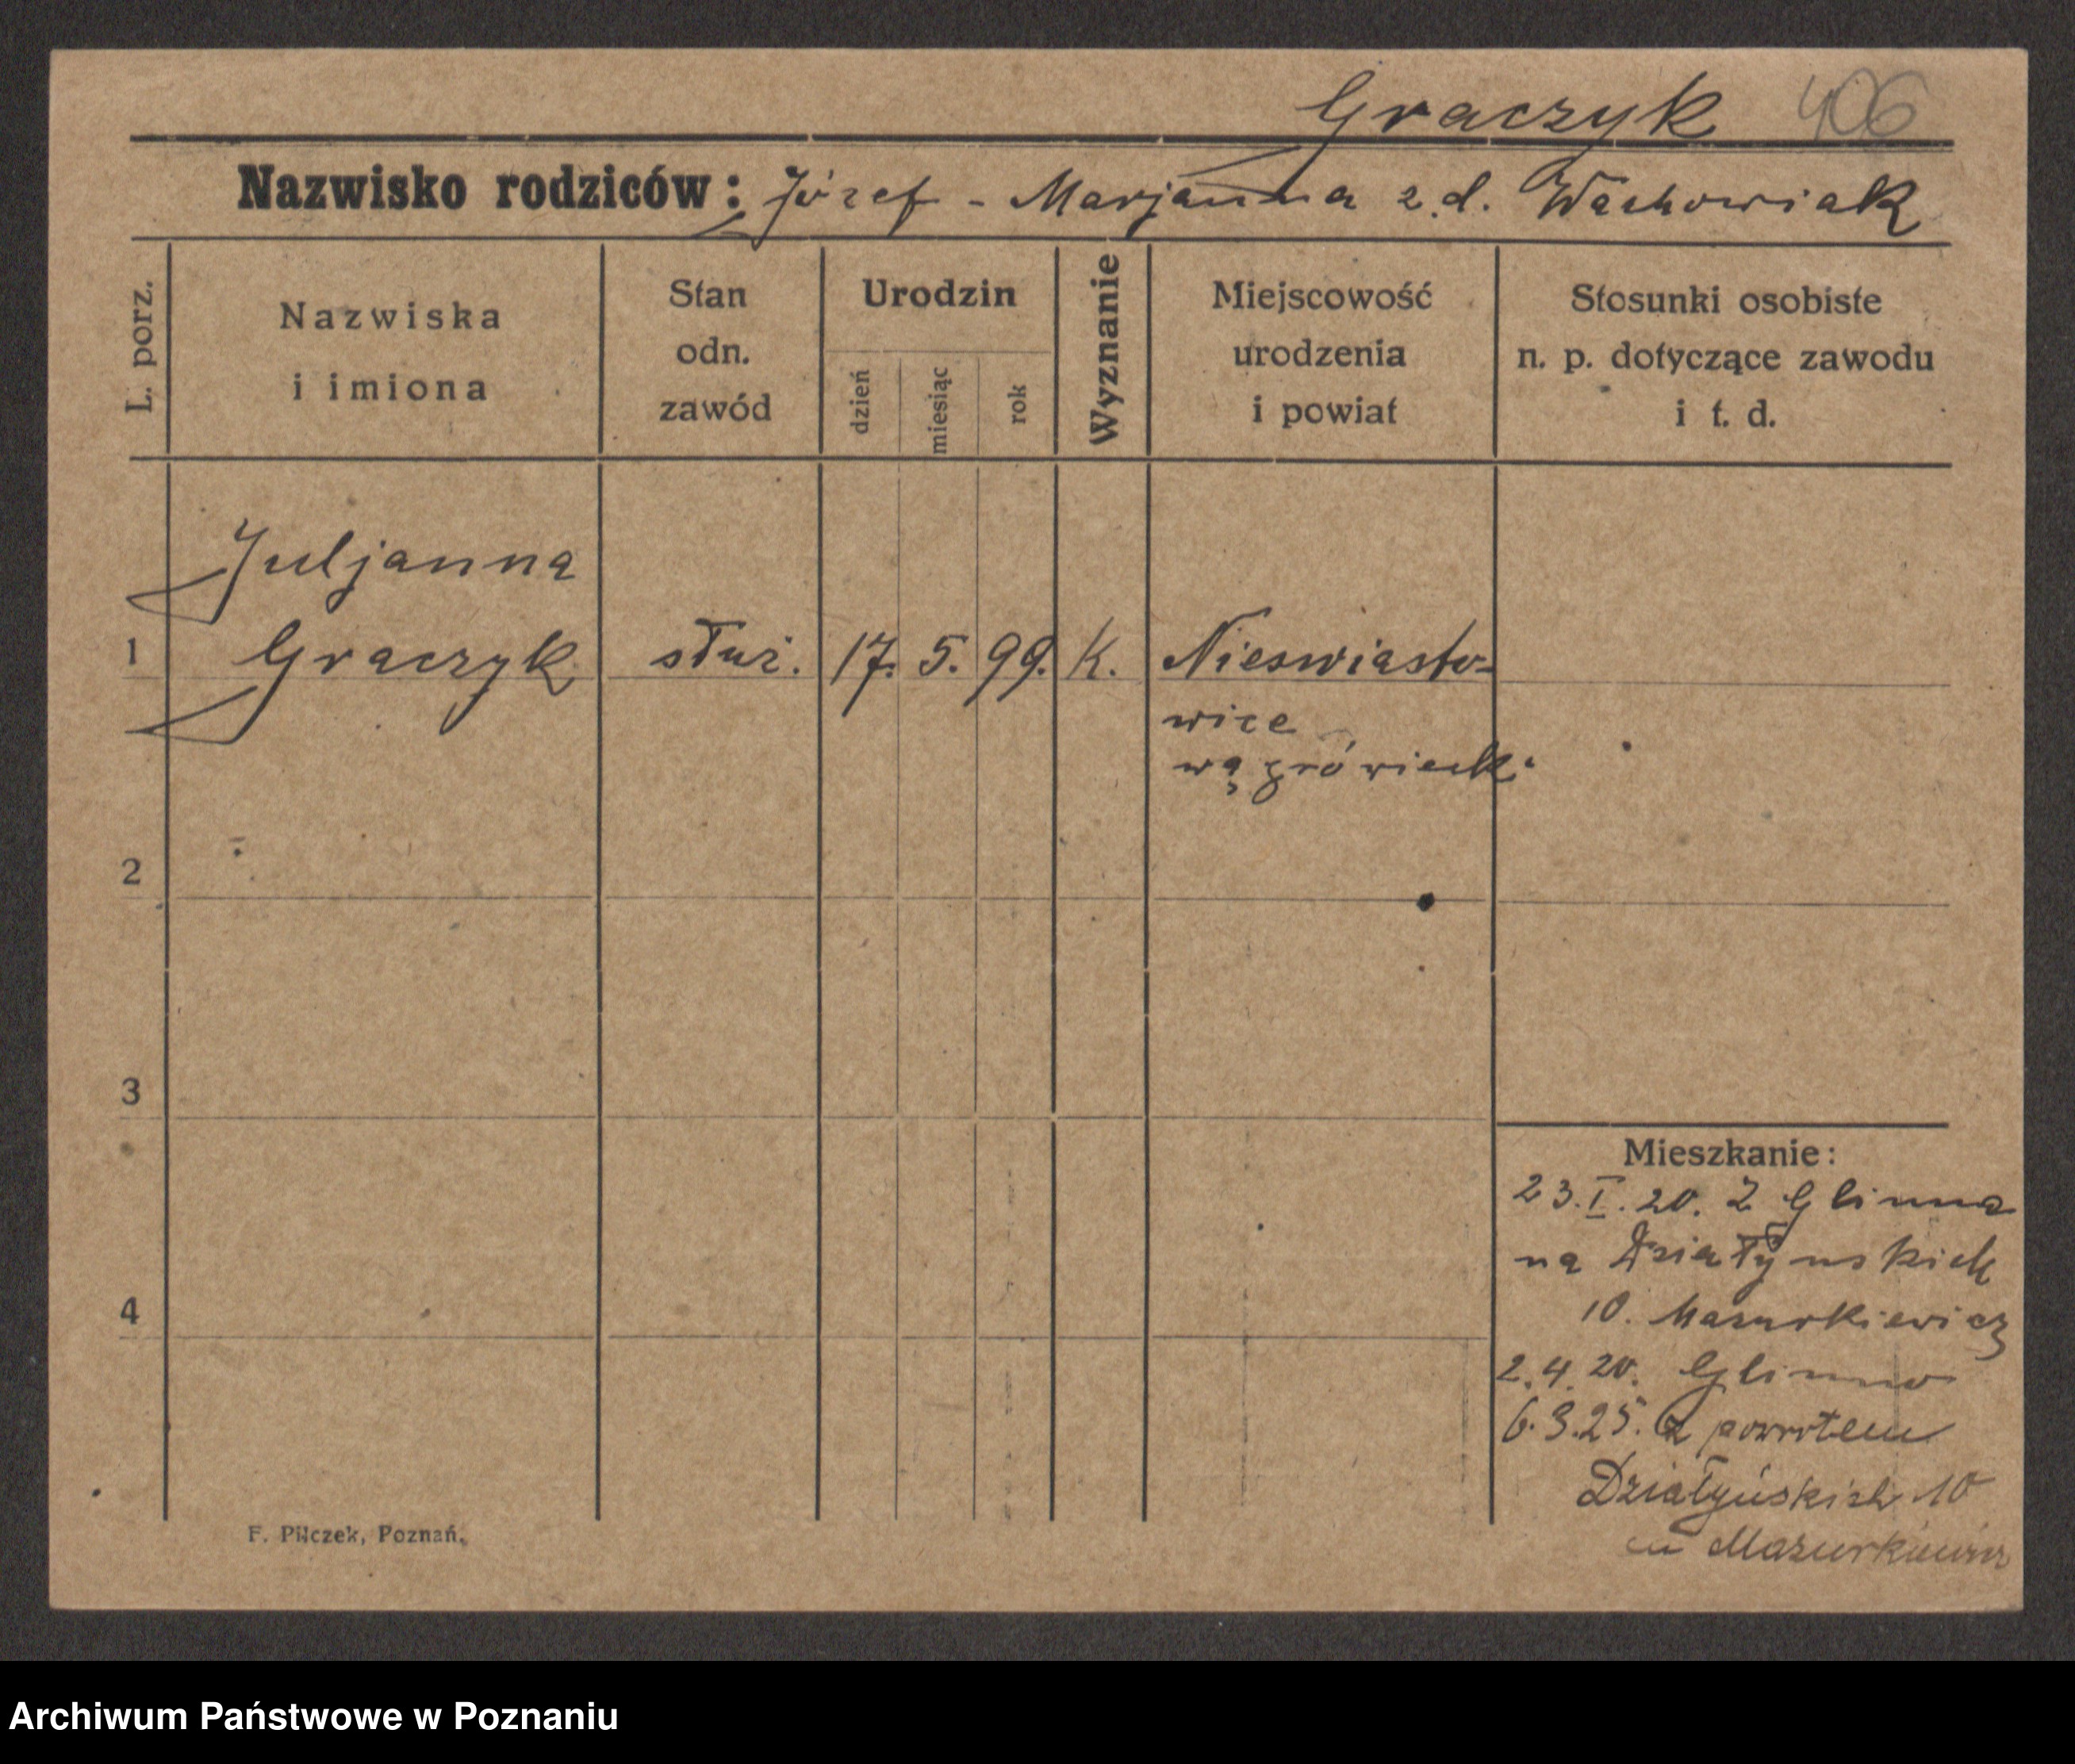 Graczyk 406
Nazwisko rodziców: Józef - Marjanna z.d. Wachowiak
L. porz.
Nazwiska
i imiona
Stan
odn.
zawód
Urodzin
dzień
miesiąc
rok
Wyznanie
Miejscowość
urodzenia
i powiat
Stosunki osobiste
n. p. dotyczące zawodu
i t. d.
Juljanna
1 Graczyk służ. 17. 5. 99. K. Nieswiasto-
wice
wągrówiecki
2
3
4
Mieszkanie:
23.I.20. Z Glinna
na Działynskich
10. Mazurkiewicz
2.4.20. Glinno
6.3.25. z powrotem
Działyńskich 10
u Mazurkiewicz
F. Pilczek, Poznań.
Archiwum Państwowe w Poznaniu